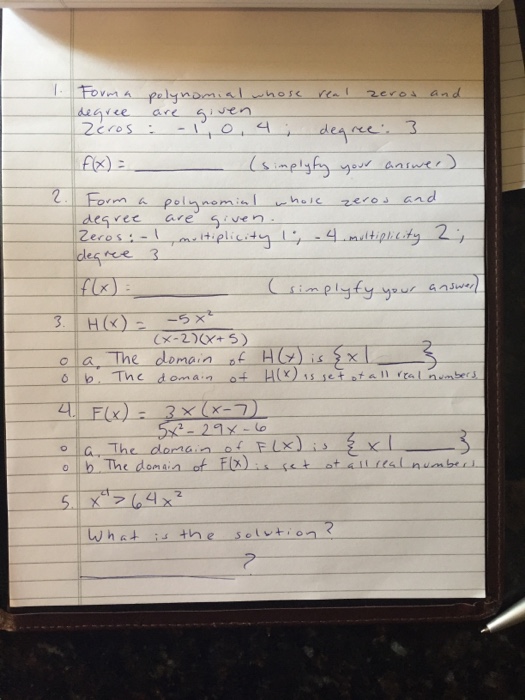 1. Form a polynomial whose real zeros and
degree are given
Zeros : -1, 0, 4 ; degree: 3
f(x) = ______ (simplyfy your answer)
2. Form a polynomial whose zeros and
degree are given.
Zeros: -1, multiplicity 1; -4, multiplicity 2;
degree 3
f(x) = ______ (simplyfy your answer)
3. H(x) = -5x²
(x-2)(x+5)
o a. The domain of H(x) is {x| ____}
o b. The domain of H(x) is set of all real numbers
4. F(x) = 3x(x-7)
5x²-29x-6
o a. The domain of F(x) is {x| ____}
o b. The domain of F(x) is set of all real numbers
5. x⁴>64x²
What is the solution?
______?